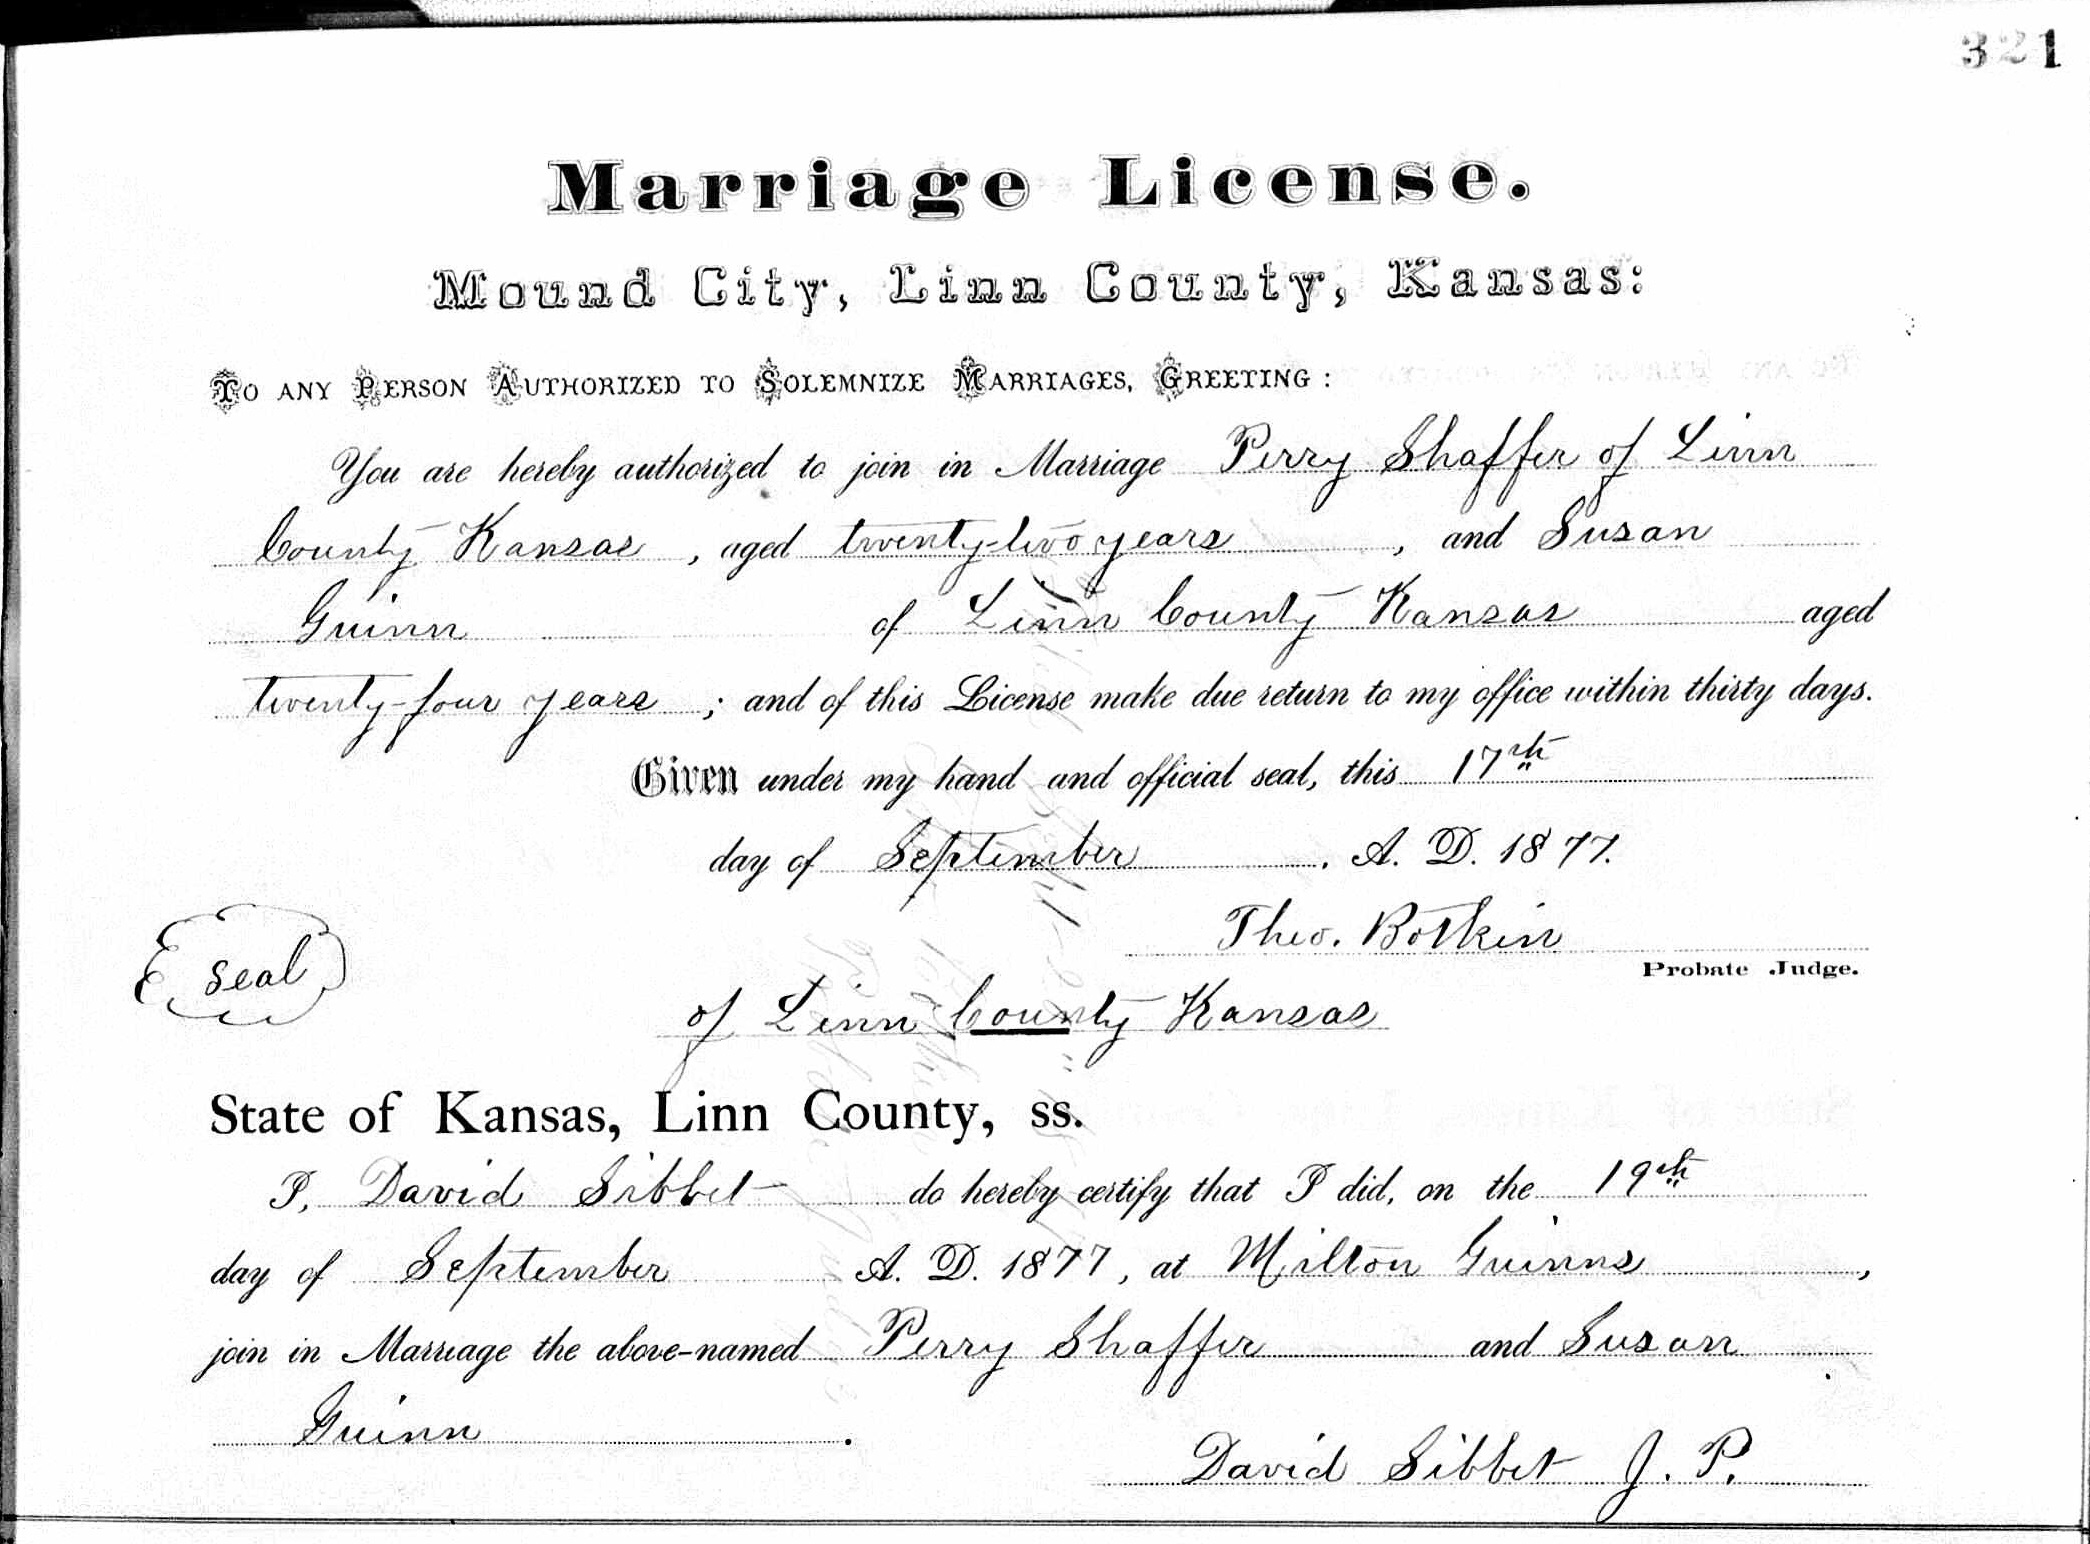 321
Marriage License.
Mound City, Linn County, Kansas:
To any Person Authorized to Solemnize Marriages, Greeting :
You are hereby authorized to join in Marriage Perry Shaffer of Linn
County Kansas , aged twenty-two years , and Susan
Guinn of Linn County Kansas aged
twenty-four years ; and of this License make due return to my office within thirty days.
Given under my hand and official seal, this 17th
day of September . A. D. 1877.
Theo. Botkin
Probate Judge.
seal
of Linn County Kansas
State of Kansas, Linn County, ss.
I, David Sibbet do hereby certify that I did, on the 19th
day of September A. D. 1877, at Milton Guinns ,
join in Marriage the above-named Perry Shaffer and Susan
Guinn .
David Sibbet J. P.